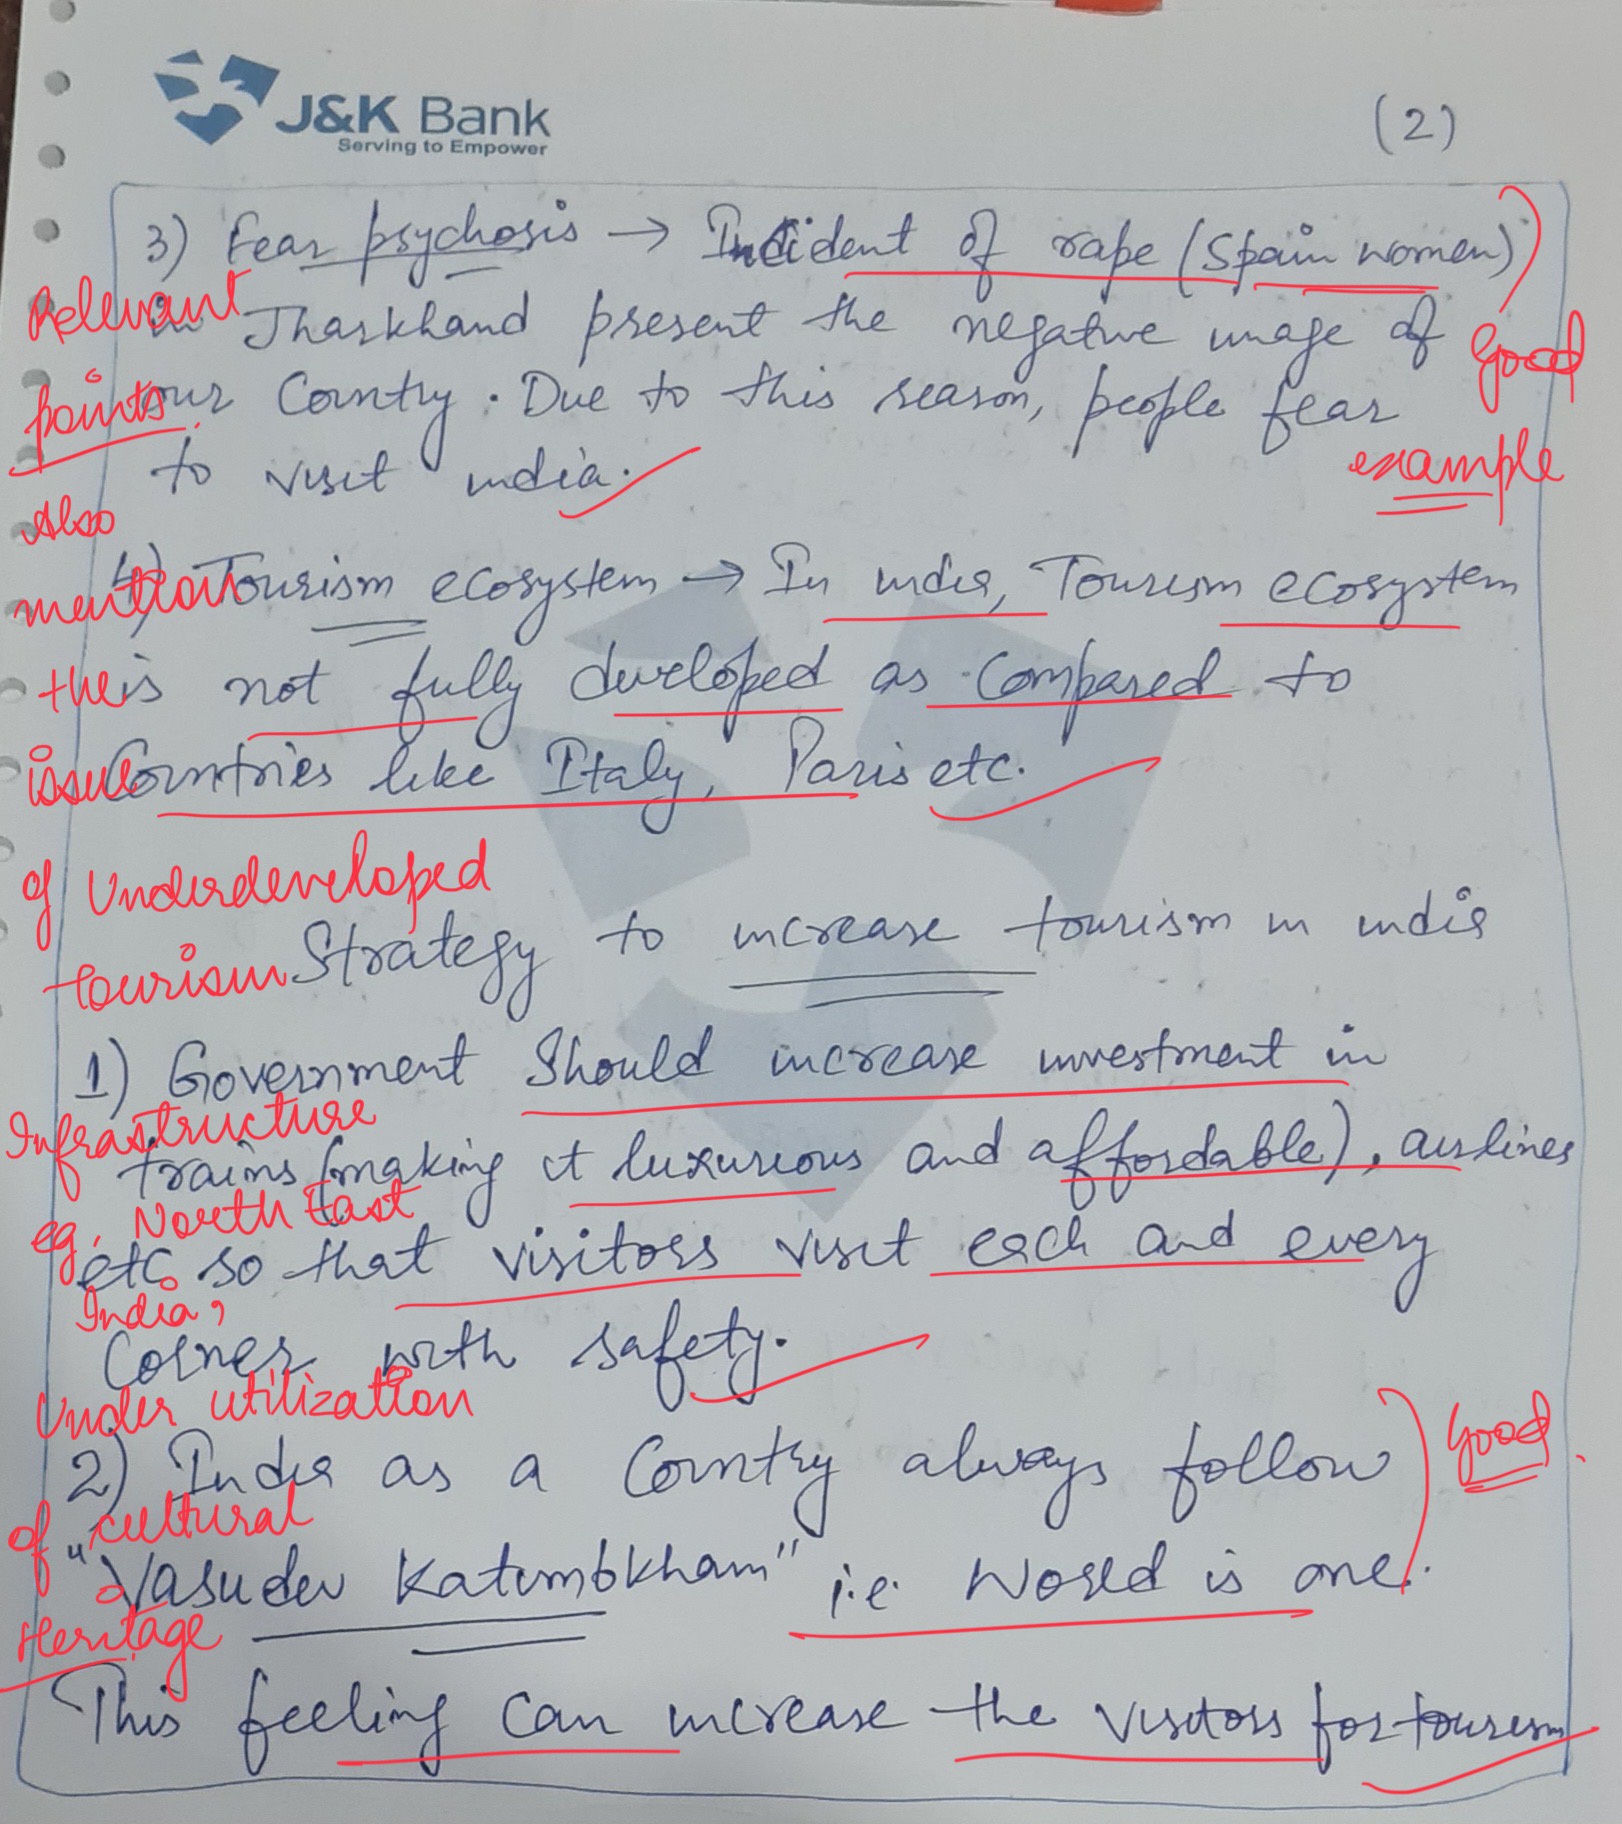 J&K Bank
Serving to Empower
(2)
3) Fear psychosis → Incident of rape (Spain women)
in Jharkhand present the negative image of
our Country. Due to this reason, people fear
to visit india.
4) Tourism ecosystem → In india, Tourism ecosystem
is not fully developed as compared to
Countries like Italy, Paris etc.
Strategy to increase tourism in india
1) Government should increase investment in
trains (making it luxurious and affordable), airlines
etc so that visitors visit each and every
Corner with safety.
2) India as a Country always follow
"Vasudev Katumbkham" i.e. World is one.
This feeling can increase the visitors for tourism
Relevant
points.
Also
mention
the
issue
of Underdeveloped
tourism
Infrastructure
eg. North East
India,
Under utilization
of cultural
Heritage
Good
example
Good.